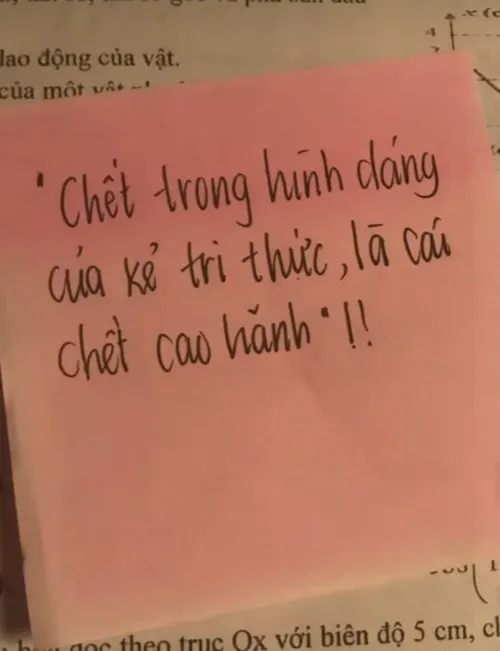 dao động của vật.
của một vật
x
"Chết trong hình dáng
của kẻ tri thức, là cái
chết cao hãnh"!!
gọc theo trục Ox với biên độ 5 cm,